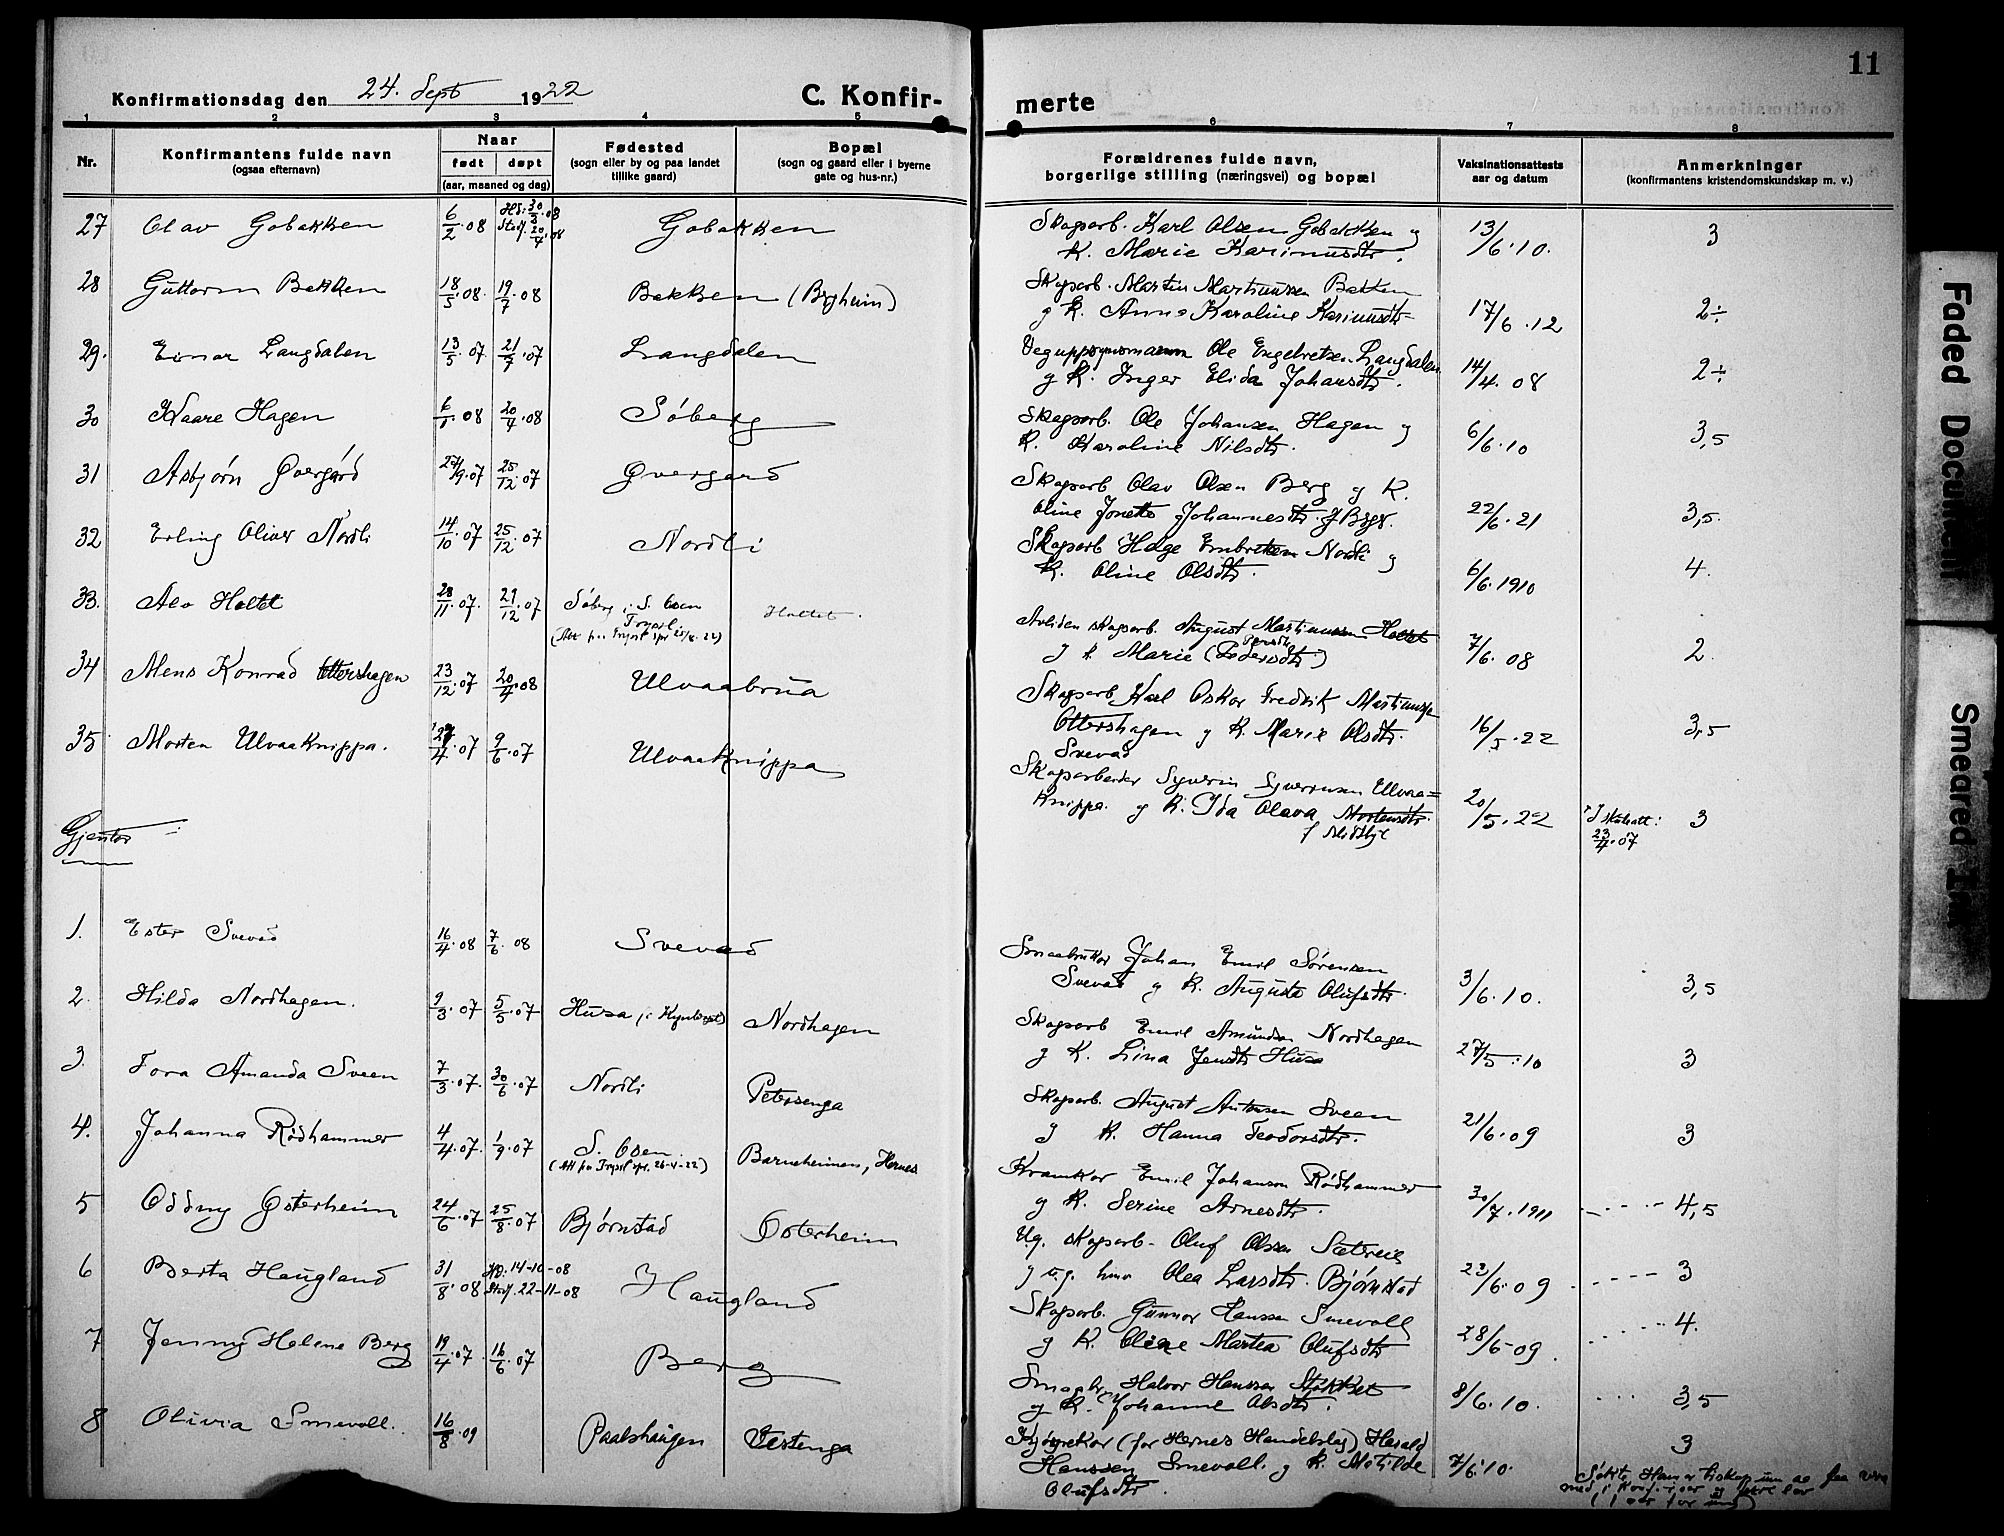 11
Konfirmationsdag den 24. Sept 1922
C. Konfir-
merte
1 2 3 4 5 6 7 8
Nr.
Konfirmantens fulde navn
(ogsaa efternavn)
Naar
født døpt
(aar, maaned og dag)
Fødested
(sogn eller by og paa landet
tillike gaard)
Bopæl
(sogn og gaard eller i byerne
gate og hus-nr.)
Forældrenes fulde navn,
borgerlige stilling (næringsvei) og bopæl
Vaksinationsattests
aar og datum
Anmerkninger
(konfirmantens kristendomskundskap m. v.)
27 Olav Gobakken 6/2.08 Hd. 30/3.08 Gobakken
Stadf. 20/4.08
Skogsarb. Karl Olsen Gobakken og
K. Marie Karinusdtr. 13/6.10. 3
28 Guttorm Bakken 18/5.08. 19/7.08 Bakken (Bygheim)
Skogsarb. Martin Martinusen Bakken
og K. Anne Karoline Karinusdtr 17/6.12 2÷
29. Einar Langdalen 13/5.07 21/7.07 Langdalen
Veguppsynsmann Ole Engebretsen Langdalen
og K. Inger Elida Johansdtr. 14/4.08 2÷
30 Kaare Hagen 20/4.08 Søberg
Skogsarb. Ole Johansen Hagen og
K. Karoline Nilsdtr. 6/6.10 3,5
31 Asbjørn Øvergård 27/9.07 25/12.07 Øvergard
Skogsarb Olav Olsen Berg og K.
Oline Jonette Johannesdtr. 22/6.21 3,5.
32 Erling Oliver Nordli 14/10.07 25/12.07 Nordli
Skogsarb Helge Embretsen Nordli og
K. Oline Olsdtr. 6/6.1910 4.
33. Alv Holtet 28/11.07. 29/12.07 Søberg i S. Osen Holtet.
Trysil
(Att fra Trysil spr 22)
Avliden skogsarb. August Martinusen Holtet
og K Marie (Pedersdtr) 7/6.08 2.
34 Mens Konrad Ottershagen 23/12.07 20/4.08 Ulvaabrua
Skogsarb. Karl Oskar Fredrik Martinusen
Ottershagen og K. Marie Olsdtr. 16/5.22 3,5
Svevad
35 Morten Ulvaaknippa. 4.07 9/6.07 Ulvaaknippa
Skogsarbeider Syverin Syverinsen Ulvaa=
knippa og K. Ida Olava Mortensdtr. 20/5.22 I skuleatt: 3
f Midtbye 23/4.07
Gjentor:
1. Ester Svevad 16/4.08 7/6.08 Svevad
Smaabrukar Johan Emil Sørensen
Svevad og K. Augusta Olufsdtr. 3/6.10. 3,5
2. Hilda Nordhagen. 9/3.07 5/5.07 Husa (i Hynberget) Nordhagen
Skogsarb Emil Amundsen Nordhagen
og K. Lina Jensdtr Husa 27/5.10 3
3. Tora Amanda Sveen 7/3.07. 30/6.07 Nordli Petersenga
Skogsarb. August Antonsen Sveen
og K. Hanna Teodorsdtr. 21/6.09 3
4. Johanna Rødhammer 4/4.07. 1/9.07 S. Osen Barneheimen, Hernes
(Att fra Trysil spr. 26-4-22)
Kramkar Emil Johanson Rødhammer
og K. Serine Arnesdtr. 30/7.1911 4,5
5 Oddny Østerheim 24/6.07 25/8.07 Bjørnstad Østerheim
Ug. skogsarb. Oluf Olsen Sætreie
og ug. kvn Olea Larsdtr. Bjørnstad 23/6.09 3
6 Berta Haugland 31/8.08 Hd. 14-10-08 Haugland
Stadf. 22-11-08
Skogsarb. Gunnar Hansen Smevoll
og K. Oline Martea Olufsdtr 28/6-09. 4.
7 Jenny Helene Berg 19/4.07. 16/6.07 Berg
Smaabr. Halvor Hansen Stokket
og K. Johanne Olsdtr. 8/6.10. 3,5
8 Olivia Smevoll. 16/8.09 Paalshaugen Vestenga
Kjøyrekar (for Hernes Handelslag) Harald
Hanssen Smevoll. og K. Matilde 7/6.10. 3
Olufsdtr.
Søkte Hamar biskop um aa faa vera
med i konf. i aar
(1 aar for ung)
Faded Document
Smeared Ink